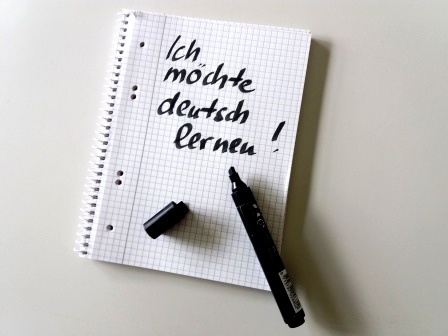 Ich
möchte
deutsch
lernen!